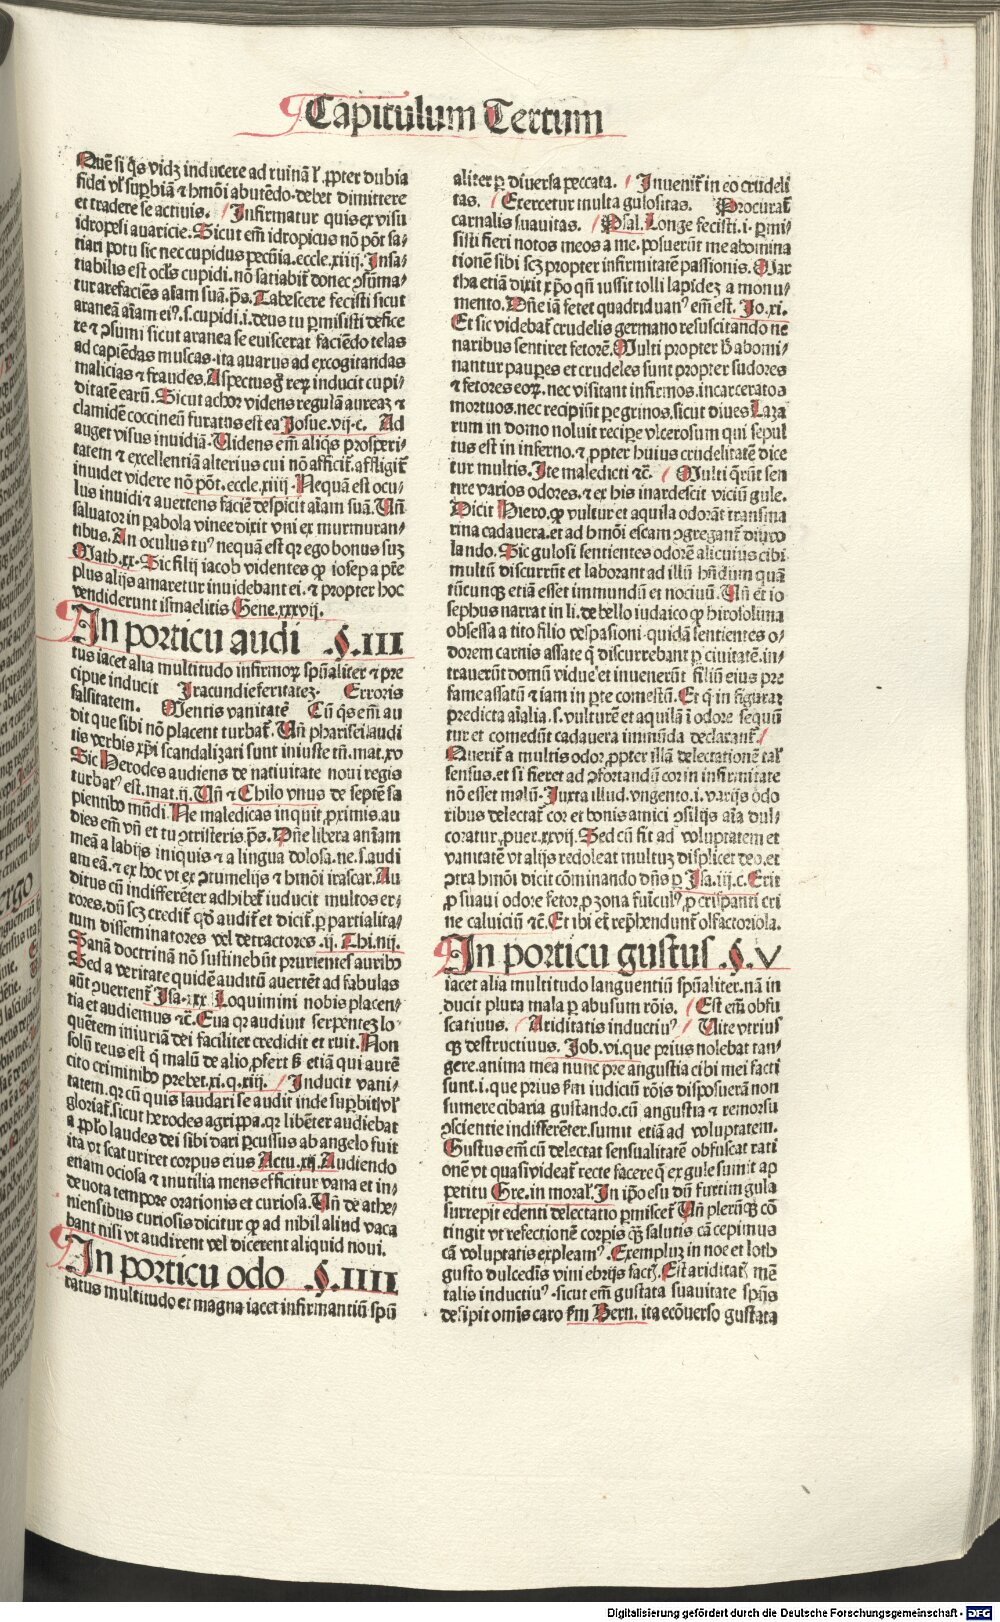 Capitulum Tertum
Quē si q̄s vidȝ inducere ad ruinā l' ꝓpter dubia
fidei vl' suꝑbiā ⁊ hmōi abutēdo. debet dimittere
et tradere se actiuis. / Infirmatur quis ex visu
idropesi auaricie. Sicut em̄ idropicus nō pōt sa-
tiari potu sic nec cupidus pecūia. eccle. xiiij. Insa-
tiabilis est ocl's cupidi. nō satiabit̄ donec ꝯsūma-
tur arefaciēs aīam suā. p̄s. Tabescere fecisti sicut
araneā aīam eiꝰ. s. cupidi. i. deus tu ꝑmisisti defice
re ⁊ ꝯsumi sicut aranea se euiscerat faciēdo telas
ad capiēdas muscas. ita auarus ad excogitandas
malicias ⁊ fraudes. Aspectus g̊ reꝝ inducit cupi-
ditatē earū. Sicut achor videns regulā aureaȝ ⁊
clamidē coccineū furatus est ea Josue. vij. c. Ad
auget visus inuidiā. Uidens em̄ aliq̄s prosperi-
tatem ⁊ excellentiā alterius cui nō afficit̄. affligit̄
inuidet videre nō pōt. eccle. xiiij. Nequā est ocu-
lus inuidi ⁊ auertens faciē despicit aīam suā. Un̄
saluator in ꝑabola vinee dixit vni ex murmuran-
tibus. An oculus tuꝰ nequā est qꝛ ego bonus suȝ
Math. xx. Sic filij iacob videntes ꝙ iosep a pr̄e
plus alijs amaretur inuidebant ei. ⁊ propter hoc
vendiderunt ismaelitis Gene. xxxvij.
In porticu audi .§. III
tus iacet alia multitudo infirmoꝝ spūaliter ⁊ pre
cipue inducit Iracundie feritateȝ. Erroris
falsitatem. Mentis vanitatē Cū q̄s em̄ au
dit que sibi nō placent turbat̄. Un̄ pharisei audi
tis verbis xp̄i scandalizati sunt iniuste tn̄. mat. xv
Sic Herodes audiens de natiuitate noui regis
turbatꝰ est. mat. ij. Un̄ ⁊ Chilo vnus de septē sa
pientibꝰ mūdi. Ne maledicas inquit ꝓximis. au
dies em̄ vn̄ et tu ꝯtristeris. p̄s. Dn̄e libera animam
meā a labijs iniquis ⁊ a lingua dolosa. ne. s. audi
am eā. ⁊ ex hoc vt ex ꝯtumelijs ⁊ hmōi irascar. Au
ditus cū indifferēter adhibet̄ iuducit multos er-
rores. dū sȝ credit̄ qd̄ audit̄ et dicit̄ ꝑ partialita-
tum disseminatores vel detractores. ij. Thi. iiij.
Sanā doctrinā nō sustinebūt prurientes auribꝰ
Sed a veritate quidē auditū auertēt ad fabulas
aūt ꝯuertent̄ Isa. xxx Loquimini nobis placen-
tia et audiemus ⁊c̄. Eua qꝛ audiuit serpenteȝ lo-
quētem iniuriā dei faciliter credidit et ruit. Non
solū reus est q̄ malū de alio ꝓfert sȝ etiā qui aurē
cito criminibꝰ prebet. xi. q. iij. / Inducit vani-
tatem. qꝛ cū quis laudari se audit inde suꝑbit vl'
gloriat̄. sicut herodes agrippa. qꝛ libēter audiebat
a pp̄lo laudes dei sibi dari ꝑcussus ab angelo fuit
ita vt scaturiret corpus eius Actu. xij. Audiendo
etiam ociosa ⁊ inutilia mens efficitur vana et in-
deuota tempore orationis et curiosa. Un̄ de athe-
niensibus curiosis dicitur ꝙ ad nihil aliud vaca
bant nisi vt audirent vel dicerent aliquid noui.
In porticu odo .§. IIII
ratus multitudo et magna iacet infirmantiū spū
aliter ꝑ diuersa peccata. / Inuenit̄ in eo crudeli
tas. / Exercetur multa gulositas. Procurat̄
carnalis suauitas. / Psal. Longe fecisti. i. ꝑmi-
sisti fieri notos meos a me. posuerūt me abomina
tionē sibi scȝ propter infirmitatē passionis. Mar
tha etiā dixit xp̄o qn̄ iussit tolli lapideȝ a monu-
mento. Dn̄e iā fetet quadriduanꝰ em̄ est. Jo. xi.
Et sic videbat̄ crudelis germano resuscitando ne
naribus sentiret fetorē. Multi propter h̄ abomi-
nantur pauꝑes et crudeles sunt propter sudores
⁊ fetores eoꝝ. nec visitant infirmos. incarceratos
mortuos. nec recipiūt ꝑegrinos. sicut diues Laza
rum in domo noluit recipe vlcerosum qui sepul
tus est in inferno. ⁊ ꝓpter huius crudelitatē dice
tur multis. Ite maledicti ⁊c̄. / Multi q̄rūt sen
tire varios odores. ⁊ ex his inardescit viciū gule.
Dicit Hiero. ꝙ vultur et aquila odorāt transma
rina cadauera. et ad hmōi escam ꝯgregant̄ diuo
lando. Sic gulosi sentientes odorē alicuius cibi
multū discurrūt et laborant ad illū hn̄dum quā
tūcunqꝫ etiā esset immundū et nociuū. Un̄ et io
sephus narrat in li. de bello iudaico ꝙ hirosolima
obsessa a tito filio vespasiani. quidā sentientes o-
dorem carnis assate q̄ discurrebant ꝑ ciuitatē. in-
trauerūt domū vidue et inuenerūt filiū eius pre
fame assatū ⁊ iam in ꝑte comestū. Et q̄ in figurat
predicta aīalia. s. vulturē et aquilā ī odore sequū
tur et comedūt cadauera immūda declarant̄. /
Querit̄ a multis odor ꝓpter illā delectationē tal'
sensus. et si fieret ad ꝯfortandū cor in infirmitate
nō esset malū. Juxta illud. vngento. i. varijs odo
ribus delectat̄ cor et bonis amici ꝯsilijs aīa dul-
coratur. ꝓuer. xxvij. Sed cū fit ad voluptatem et
vanitatē vt alijs redoleat multuȝ displicet deo. et
ꝯtra hmōi dicit cōminando dn̄s ꝑ Isa. iij. c. Erit
ꝓ suaui odore fetor. ꝓ zona funiculꝰ. ꝓ crispanti cri
ne caluiciū ⁊c̄. Et ibi et̄ rep̄hendunt̄ olfactoriola.
In porticu gustus .§. V
iacet alia multitudo languentiū spūaliter. nā in
ducit plura mala ꝑ abusum rōis. / Est em̄ obfu
scatiuus. / Ariditatis inductiuꝰ / Uite vtrius
qꝫ destructiuus. Job. vi. que prius nolebat tan-
gere. anima mea nunc pre angustia cibi mei facti
sunt. i. que prius sm̄ iudiciū rōis disposuerā non
sumere cibaria gustando. cū angustia ⁊ remorsu
ꝯscientie indifferēter. sumit etiā ad voluptatem.
Gustus em̄ cū delectat sensualitatē obfuscat rati
onē vt quasi videat̄ recte facere q̄ ex gule sumit ap
petitu Gre. in moral'. In ip̄o esu dū furtim gula
surrepit edenti delectatio ꝑmiscet̄ Un̄ plerūqꝫ cō
tingit vt refectionē corꝑis qȝ salutis cā cepimus
cā voluptatis expleamꝰ. Exempluȝ in noe et loth
gusto dulcedīs vini ebrijs fact̄. Est ariditat̄ mē
talis inductiuꝰ. sicut em̄ gustata suauitate spūs
desipit omīs caro sm̄ Bern. ita ecōuerso gustata
Digitalisierung gefördert durch die Deutsche Forschungsgemeinschaft - DFG